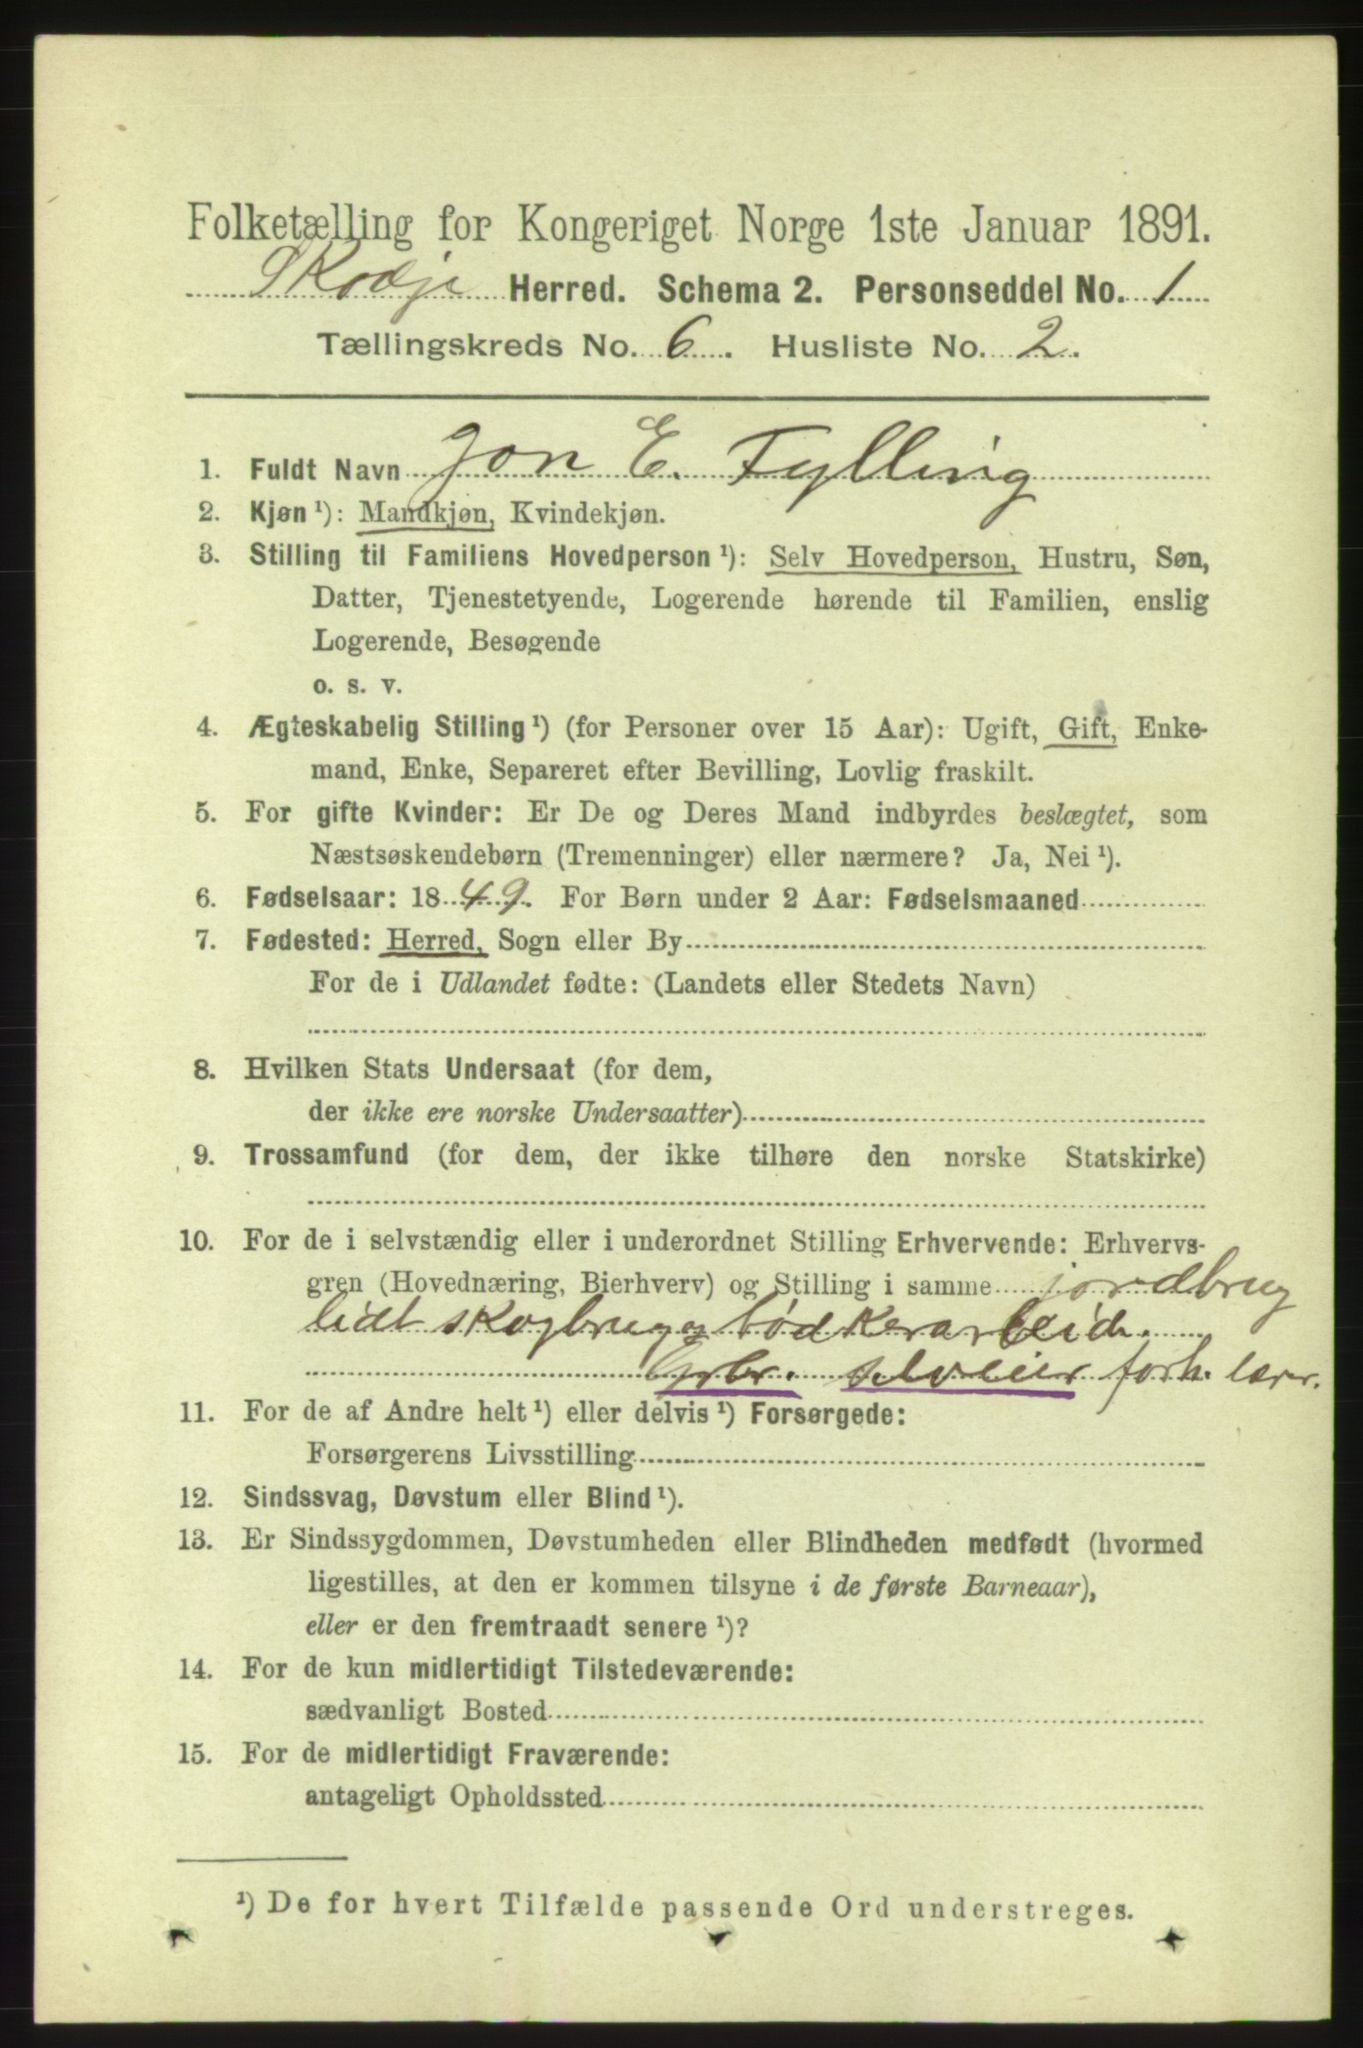 Folketælling for Kongeriget Norge 1ste Januar 1891.
Skodje Herred. Schema 2. Personseddel No. 1
Tællingskreds No. 6. Husliste No. 2.
1. Fuldt Navn Jon E. Fylling
2. Kjøn ¹): Mandkjøn, Kvindekjøn.
3. Stilling til Familiens Hovedperson ¹): Selv Hovedperson, Hustru, Søn,
Datter, Tjenestetyende, Logerende hørende til Familien, enslig
Logerende, Besøgende
o. s. v.
4. Ægteskabelig Stilling ¹) (for Personer over 15 Aar): Ugift, Gift, Enke-
mand, Enke, Separeret efter Bevilling, Lovlig fraskilt.
5. For gifte Kvinder: Er De og Deres Mand indbyrdes beslægtet, som
Næstsøskendebørn (Tremenninger) eller nærmere? Ja, Nei ¹).
6. Fødselsaar: 1849. For Børn under 2 Aar: Fødselsmaaned
7. Fødested: Herred, Sogn eller By
For de i Udlandet fødte: (Landets eller Stedets Navn)
8. Hvilken Stats Undersaat (for dem,
der ikke ere norske Undersaatter)
9. Trossamfund (for dem, der ikke tilhøre den norske Statskirke)
10. For de i selvstændig eller i underordnet Stilling Erhvervende: Erhvervs-
gren (Hovednæring, Bierhverv) og Stilling i samme jordbrug
lidt skogbrug og bødkerarbeid.
Grbr. selveier forh. lærer.
11. For de af Andre helt ¹) eller delvis ¹) Forsørgede:
Forsørgerens Livsstilling
12. Sindssvag, Døvstum eller Blind ¹).
13. Er Sindssygdommen, Døvstumheden eller Blindheden medfødt (hvormed
ligestilles, at den er kommen tilsyne i de første Barneaar),
eller er den fremtraadt senere ¹)?
14. For de kun midlertidigt Tilstedeværende:
sædvanligt Bosted
15. For de midlertidigt Fraværende:
antageligt Opholdssted
¹) De for hvert Tilfælde passende Ord understreges.